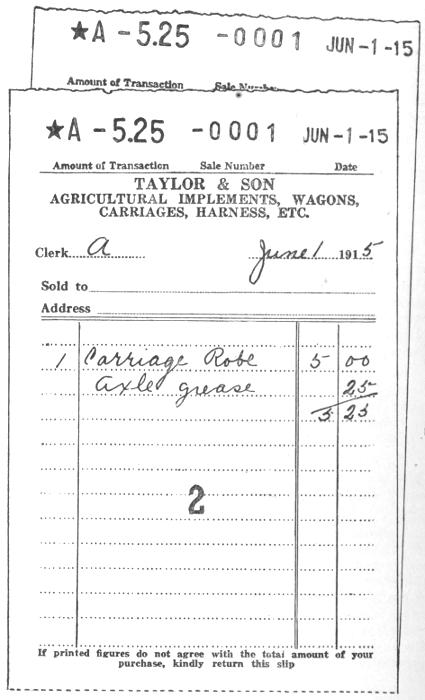 ★A -5.25 -0001 JUN-1-15
Amount of Transaction Sale Number
★A -5.25 -0001 JUN-1-15
Amount of Transaction Sale Number Date
TAYLOR & SON
AGRICULTURAL IMPLEMENTS, WAGONS,
CARRIAGES, HARNESS, ETC.
Clerk A June 1 1915
Sold to
Address
1 Carriage Robe 5 00
Axle grease 25
5 25
2
If printed figures do not agree with the total amount of your
purchase, kindly return this slip